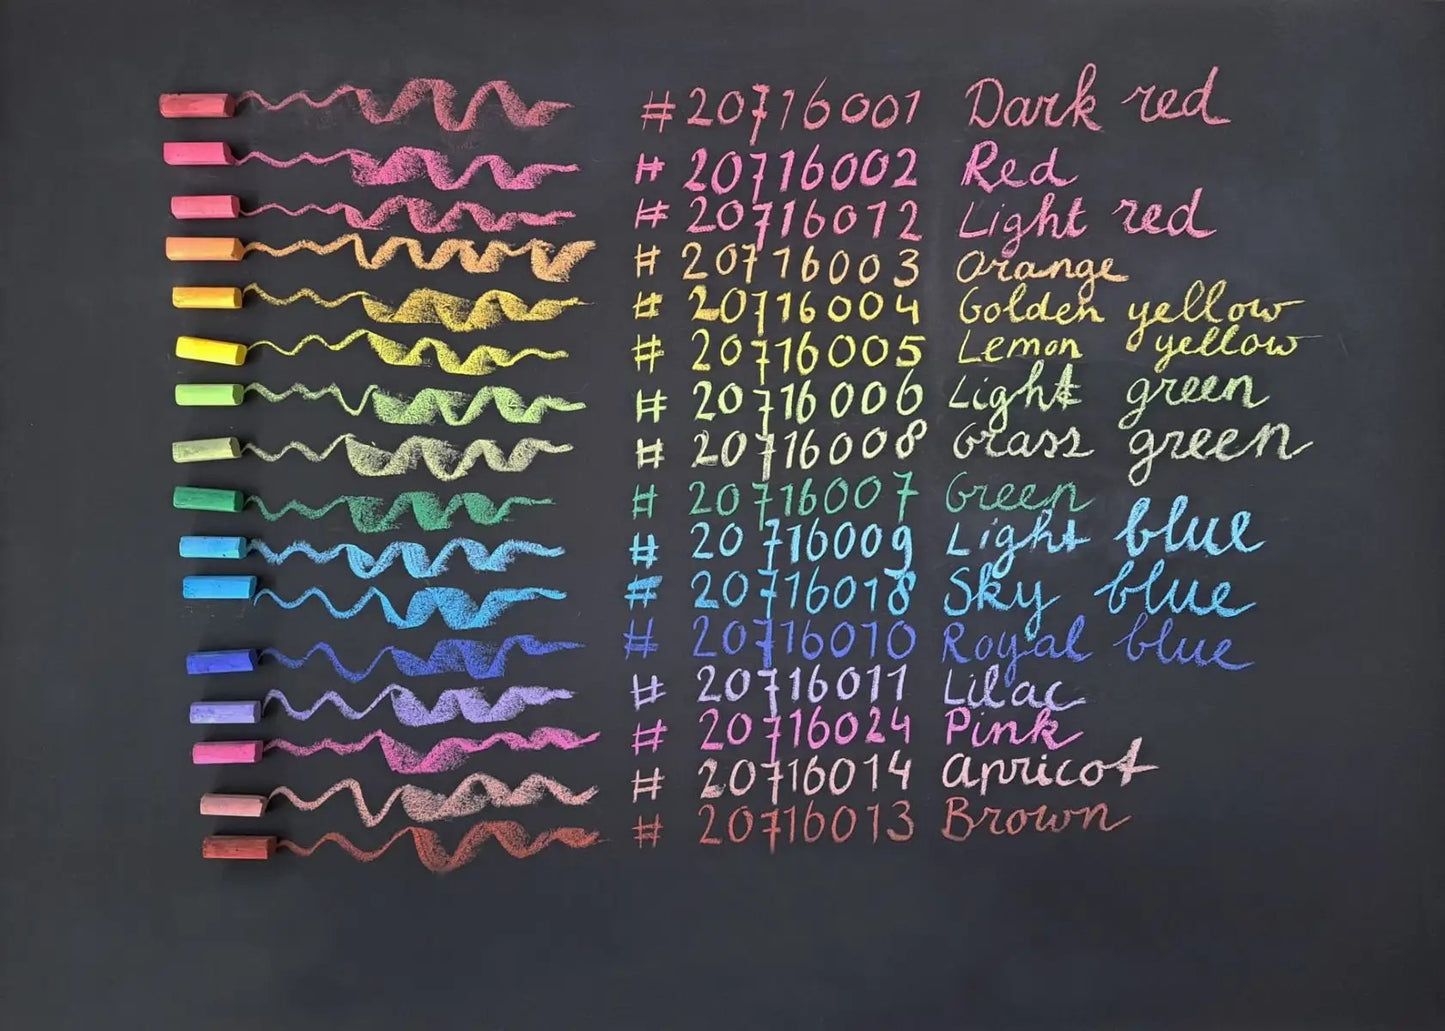 #20716001 Dark red
#20716002 Red
#20716012 Light red
#20716003 Orange
#20716004 Golden yellow
#20716005 Lemon yellow
#20716006 Light green
#20716008 Grass green
#20716007 Green
#20716009 Light blue
#20716018 Sky blue
#20716010 Royal blue
#20716011 Lilac
#20716024 Pink
#20716014 Apricot
#20716013 Brown